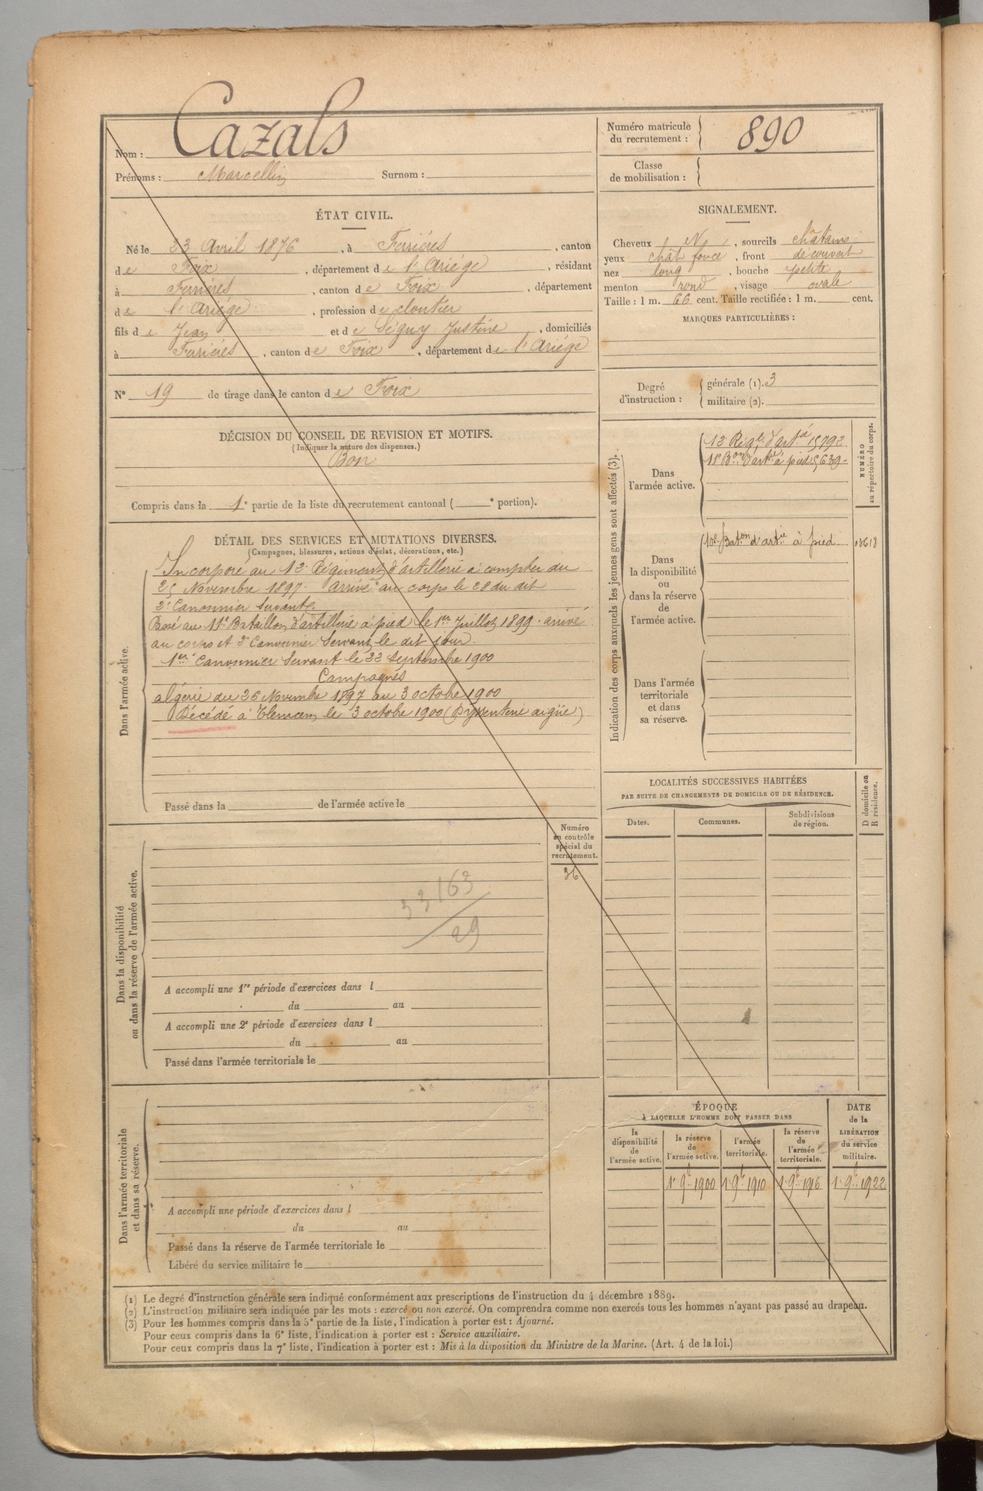 Nom : Cazals
Prénoms : Marcellin Surnom :
Numéro matricule du recrutement : 890
Classe de mobilisation :
ÉTAT CIVIL.
Né le 23 Avril 1876, à Ferrières, canton
de Foix, département de l'Ariège, résidant
à Ferrières, canton de Foix, département
de l'Ariège, profession de cloutier
fils de Jean et de Séguy Justine, domiciliés
à Ferrières, canton de Foix, département de l'Ariège
N° 19 de tirage dans le canton de Foix
SIGNALEMENT.
Cheveux N, sourcils châtains
yeux chât foncé, front découvert
nez long, bouche petite
menton rond, visage ovale
Taille : 1 m. 66 cent. Taille rectifiée : 1 m. cent.
MARQUES PARTICULIÈRES :
Degré d'instruction : générale (1). 3
militaire (2).
DÉCISION DU CONSEIL DE REVISION ET MOTIFS.
(Indiquer la nature des dispenses.)
Bon
Compris dans la 1e partie de la liste du recrutement cantonal ( e portion).
DÉTAIL DES SERVICES ET MUTATIONS DIVERSES.
(Campagnes, blessures, actions d'éclat, décorations, etc.)
Dans l'armée active.
Incorporé au 13e Régiment d'artillerie à compter du
25 Novembre 1897. Arrivé au corps le 28 du dit
2e Canonnier Servant
Passé au 11e Bataillon d'artillerie à pied le 1er Juillet 1899. arrivé
au corps et 2e Canonnier Servant le dit jour.
1er Canonnier Servant le 22 Septembre 1900
Campagnes
algérie du 26 Novembre 1897 au 3 octobre 1900
Décédé à Tlemcen le 3 octobre 1900 (Dyssenterie aigüe)
Passé dans la de l'armée active le
Indication des corps auxquels les jeunes gens sont affectés (3).
NUMÉRO au répertoire du corps.
Dans l'armée active.
13 Régt d'artie
à pied
Dans la disponibilité ou dans la réserve de l'armée active.
Baton d'artie à pied
Dans l'armée territoriale et dans sa réserve.
LOCALITÉS SUCCESSIVES HABITÉES
PAR SUITE DE CHANGEMENTS DE DOMICILE OU DE RÉSIDENCE.
Dates. Communes. Subdivisions de région.
D domicile ou R résidence.
Numéro au contrôle spécial du recrutement.
36
Dans la disponibilité ou dans la réserve de l'armée active.
163
29
A accompli une 1re période d'exercices dans l
du au
A accompli une 2e période d'exercices dans l
du au
Passé dans l'armée territoriale le
Dans l'armée territoriale et dans sa réserve.
A accompli une période d'exercices dans l
du au
Passé dans la réserve de l'armée territoriale le
Libéré du service militaire le
ÉPOQUE
À LAQUELLE L'HOMME DOIT PASSER DANS
DATE de la LIBÉRATION du service militaire.
la disponibilité de l'armée active. la réserve de l'armée active. l'armée territoriale. la réserve de l'armée territoriale.
1r 9bre 1900 1r 9bre 1910 1r 9bre 1916 1r 9bre 1922
(1) Le degré d'instruction générale sera indiqué conformément aux prescriptions de l'instruction du 4 décembre 1889.
(2) L'instruction militaire sera indiquée par les mots : exercé ou non exercé. On comprendra comme non exercés tous les hommes n'ayant pas passé au drapeau.
(3) Pour les hommes compris dans la 5e partie de la liste, l'indication à porter est : Ajourné.
Pour ceux compris dans la 6e liste, l'indication à porter est : Service auxiliaire.
Pour ceux compris dans la 7e liste, l'indication à porter est : Mis à la disposition du Ministre de la Marine. (Art. 4 de la loi.)